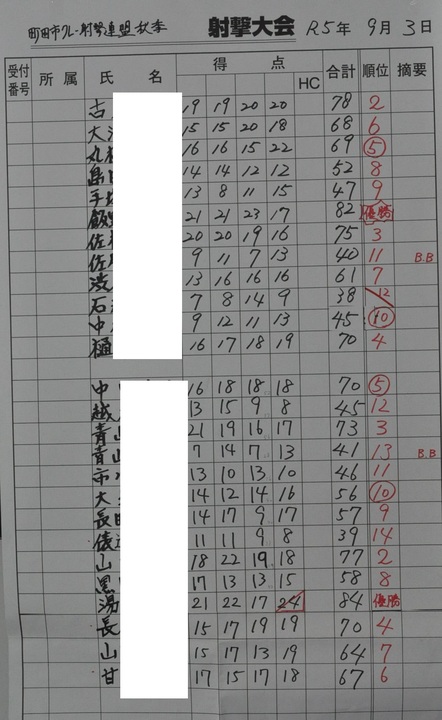 町田市クレー射撃連盟秋季 射撃大会 R5年 9月 3日
受付番号 所属 氏名 得点 HC 合計 順位 摘要
古 19 19 20 20 78 2
大 15 15 20 18 68 6
丸 16 16 15 22 69 5
島 14 14 12 12 52 8
手 13 8 11 15 47 9
飯 21 21 23 17 82 優勝
佐 20 20 19 16 75 3
佐 9 11 7 13 40 11 B.B
渋 13 16 16 16 61 7
石 7 8 14 9 38 12
中 9 12 11 13 45 10
樋 16 17 18 19 70 4
中 16 18 18 18 70 5
越 13 15 9 8 45 12
青山 21 19 16 17 73 3
青山 7 14 7 13 41 13 B.B
市 13 10 13 10 46 11
大 14 12 14 16 56 10
長田 14 17 9 17 57 9
俵 11 11 9 8 39 14
山 18 22 19 18 77 2
黒 17 13 13 15 58 8
湯 21 22 17 24 84 優勝
長 15 17 19 19 70 4
山 15 17 13 19 64 7
甘 17 15 17 18 67 6